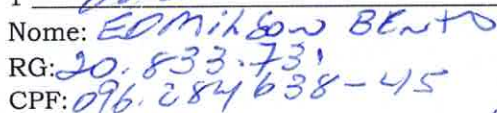 Nome: EDMilSON BENTO
RG: 20.833.731
CPF: 096.284638-45